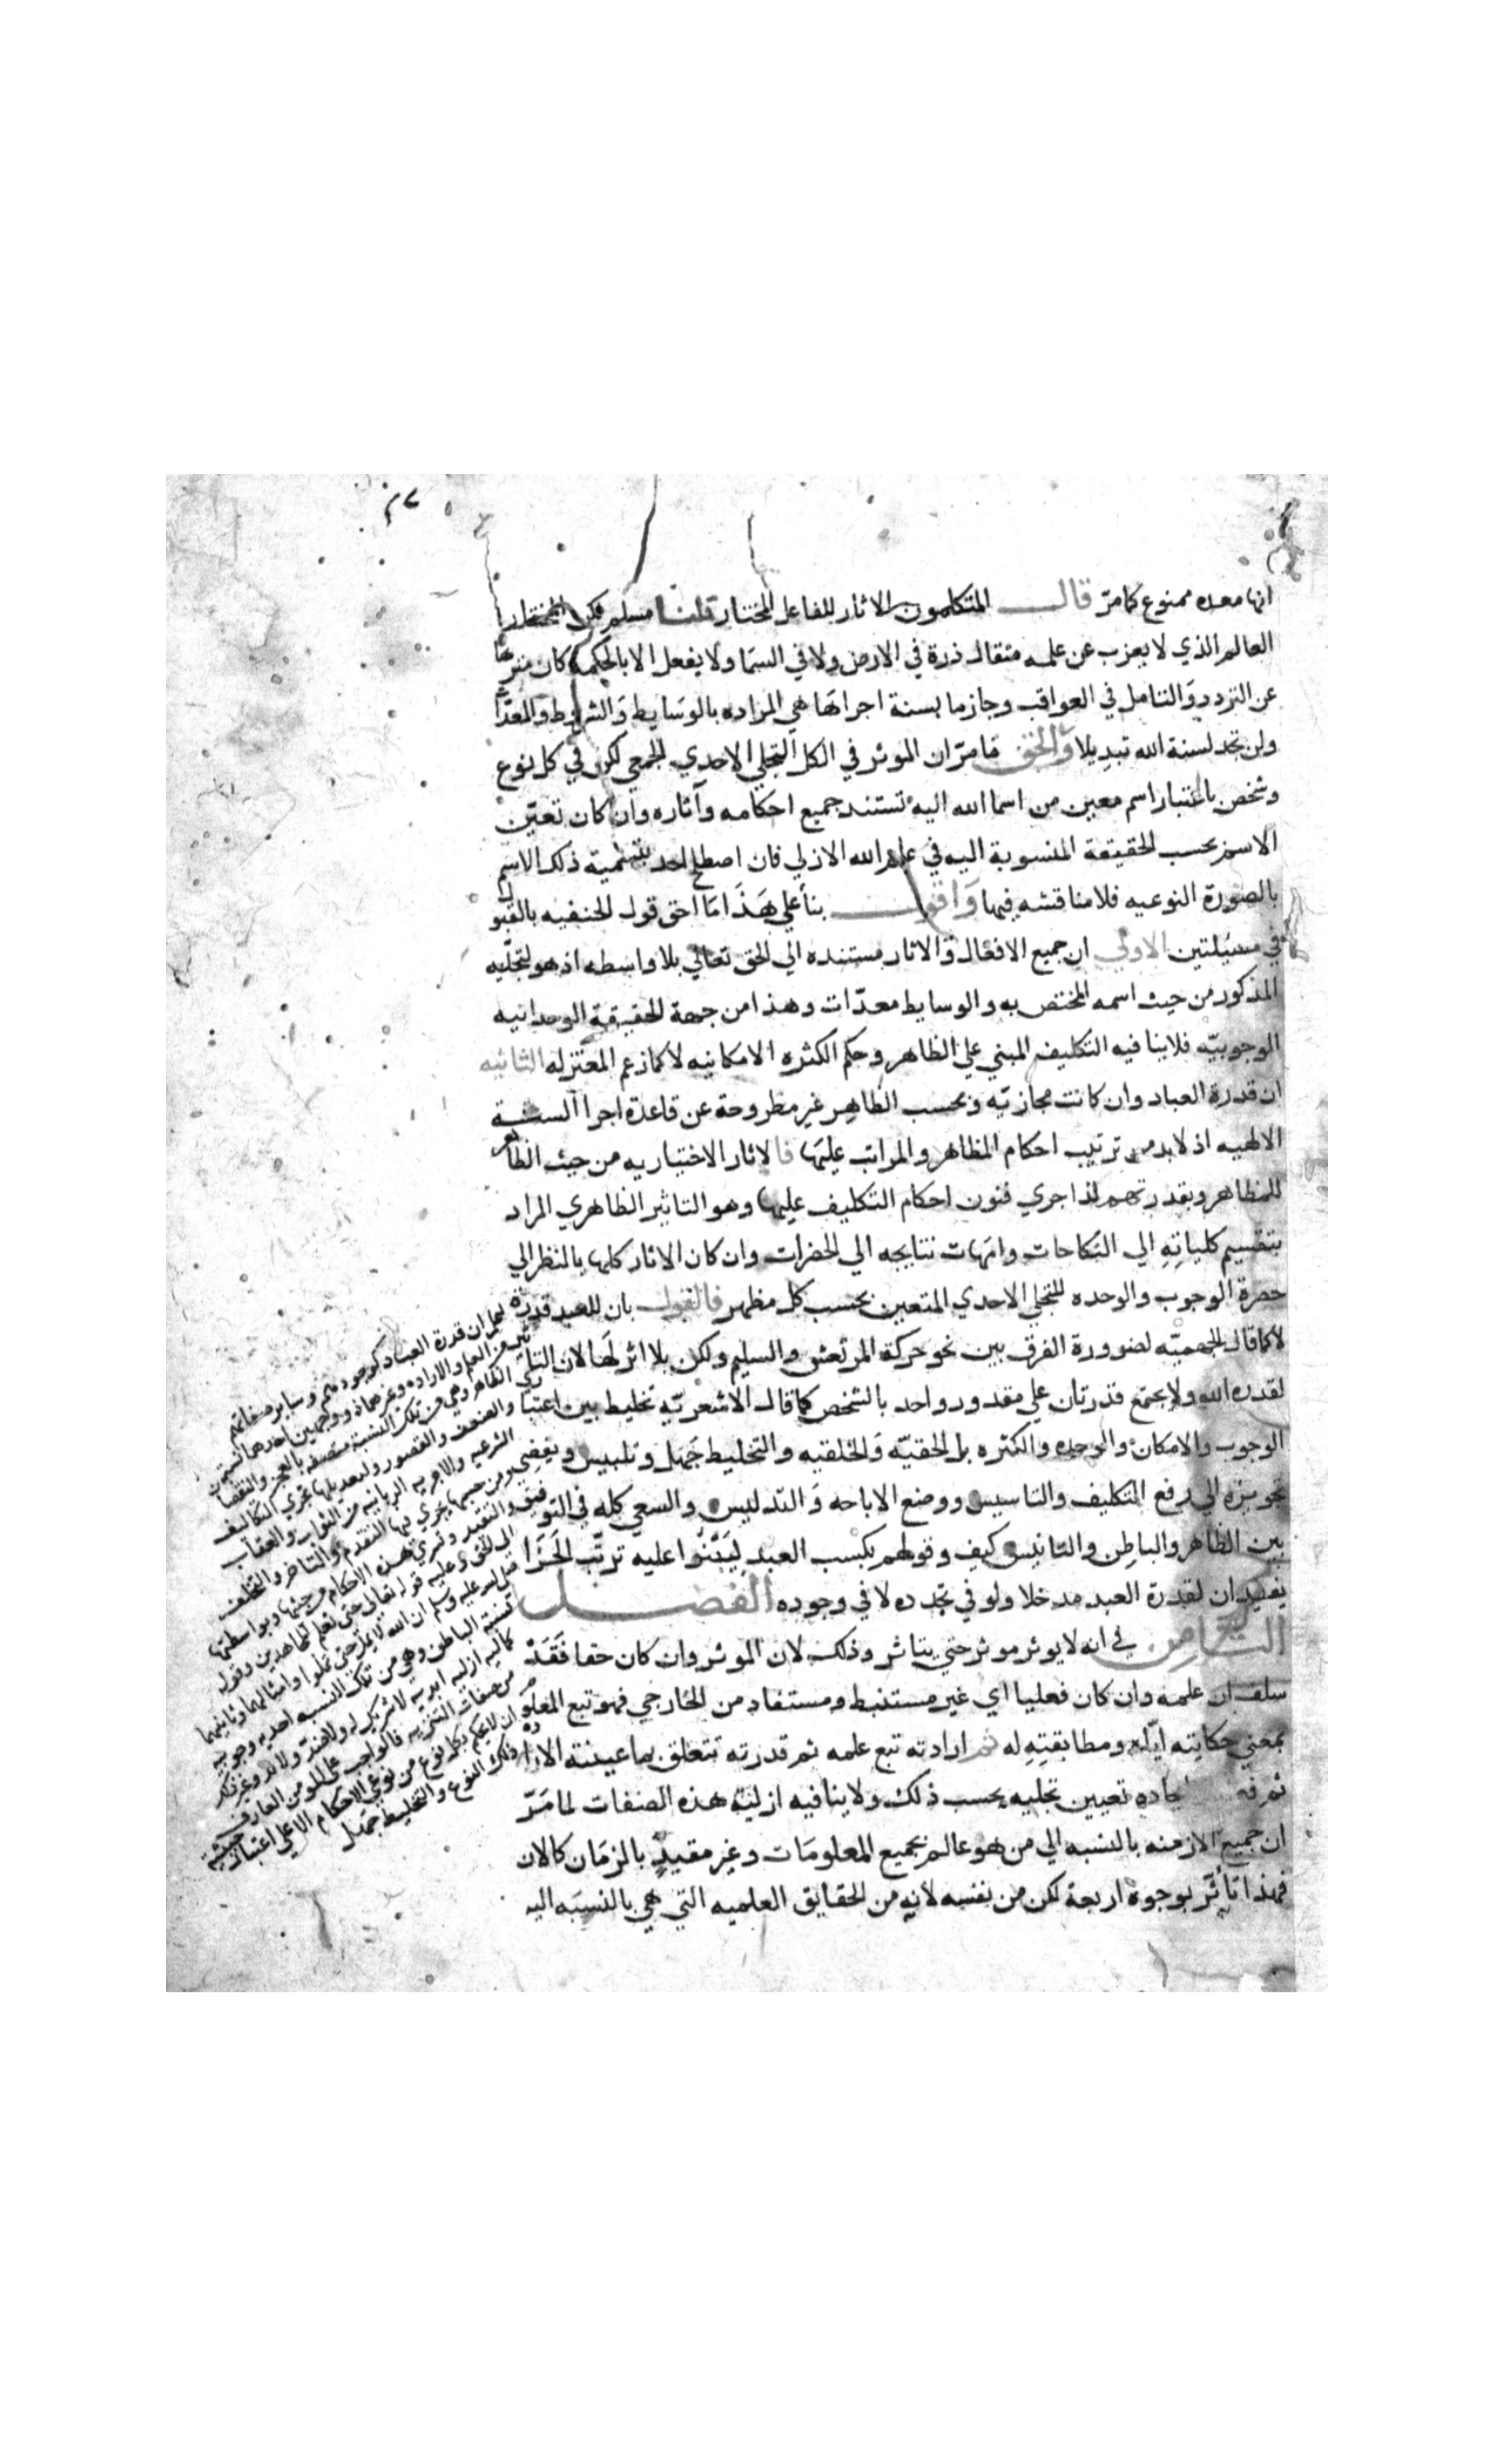 ٢٧
انها معده ممنوع كما مرّ قال المتكلمون الاثار للفاعل المختار قلنا مسلم لكن المختار
العالم الذي لا يعزب عن علمه مثقال ذرة في الارض ولا في السما ولا يفعل الا بالحكمة كان منزها
عن التردد والتامل في العواقب وجازما بسنة اجراها هي المراده بالوسايط والشروط والمعدا
ولن تجد لسنة الله تبديلا والحق ما مرّ ان الموثر في الكل التجلي الاحدي الجمعي لكن في كل نوع
وشخص باعتبار اسم معين من اسما الله اليه تستند جميع احكامه وآثاره وان كان تعيّن
الاسم بحسب الحقيقة المنسوبة اليه في علم الله الازلي فان اصطلح احد بتسمية ذلك الاسم
بالصورة النوعيه فلا مناقشه فيها واقول بنأ علي هذا ما احق قول الحنفيه بالقبول
في مسئلتين الاولي ان جميع الافعال والاثار مستنده الي الحق تعالي بلا واسطه اذ هو لتجليه
المذكور من حيث اسمه المختص به والوسايط معدّات وهذا من جهة الحقيقة الوحدانيه
الوجوبيّه فلا ينافيه التكليف المبني علي الظاهر وحكم الكثره الامكانيه لا كما زعم المعتزله الثانيه
ان قدرة العباد وان كانت مجازيّه وبحسب الظاهر غير مطروحة عن قاعدة اجرا السنة
الالهيه اذ لا بد من ترتيب احكام المظاهر والمراتب عليها فالاثار الاختياريه من حيث الظاهر
للمظاهر وبقدرتهم لذا جري فنون احكام التكليف عليها وهو التاثير الظاهري المراد
بتقسيم كلياته الي النكاحات وامهات نتايجه الي الحضرات وان كان الاثار كلها بالنظر الي
حضرة الوجوب والوحده للتجلي الاحدي المتعين بحسب كل مظهر فالقول بان للعبد قدرة
لا كما قال الجهميّه لضرورة الفرق بين نحو حركة المرتعش والسليم ولكن بلا اثر لها لان التاثير
لقدره الله ولا يجتمع قدرتان علي مقدور واحد بالشخص كما قال الاشعريّه تخليط بين اعتبا
الوجوب والامكان والوحده والكثره بل الحقيّه والخلقيه والتخليط جهل وتلبيس ويفضي
تجويزه الي رفع التكليف والتاسيس ووضع الاباحه والتدليس والسعي كله في التوفيق
بين الظاهر والباطن والتانيس كيف وقولهم بكسب العبد ليبتنوا عليه ترتّب الجزا
يفيد ان لقدرة العبد مدخلا ولو في تجدده لا في وجوده الفصل
الثامن في انه لا يوثر موثر حتي يتاثر وذلك لان الموثر وان كان حقا فقد
سلف ان علمه وان كان فعليا اي غير مستنبط ومستفاد من الخارجي فهو تبع المعلوم
بمعني حكايته اياه ومطابقته له ثم ارادته تبع علمه ثم قدرته تتعلق بما عينته الاراده
ثم في ايجاده تعيين تجليه بحسب ذلك ولا ينافيه ازلية هذه الصفات لما مرّ
ان جميع الازمنه بالنسبه الي من هو عالم بجميع المعلومات وغير مقيد بالزمان كالان
فهذا تأثّر بوجوه اربعة لكن من نفسه لانه من الحقايق العلميه التي هي بالنسبه اليه
اعلم ان قدرة العباد كوجودهم وساير صفاتهم
من العلم والاراده وغيرهما ذو وجهين احدهما النسبة
الظاهر وهي من تلك النسبة متصفه بالعجز والنقصا
والضعف والقصور ولبعديتها تجري التكاليف
الشرعيه والاجريه الربانيه من الثواب والعقاب
ومن حيثها يجري فيها التقدم والتاخر والتخلف
والتقيد وتسري هذه الاحكام من حيثها وبواسطتها
الي الحق وعليه قوله تعالي حتي نعلم المجاهدين وقوله
صلي الله عليه وسلم ان الله لا يمل حتي تملوا وامثالها وثانيهما
نسبة الباطن وهو من تلك النسبه احديه وجوبيه
كماليه ازليه ابديه لا شريك له ولا ضد ولا ند وغير ذلك
من صفات التنزيه فالواجب علي المومن العارف
ان لا يحكم بكل نوع من نوعي الاحكام الا علي اعتبار حيثية
ذلك النوع والتخليط جهل